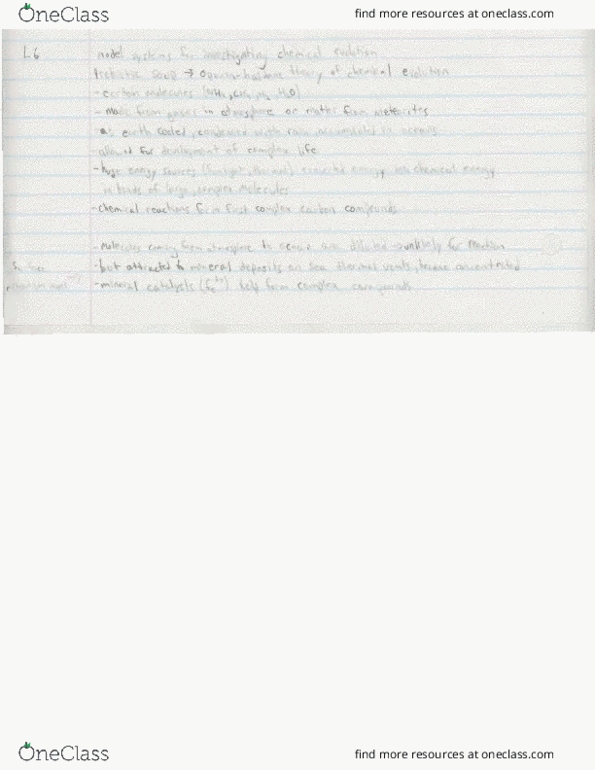 OneClass
find more resources at oneclass.com
L6
model systems for investigating chemical evolution
Prebiotic soup → Oparin-haldane theory of chemical evolution
- carbon molecules (NH3, CH4, H2, H2O)
- made from gases in atmosphere or matter from meteorites
as earth cooled, condensed with rain, accumulated in oceans
- allowed for development of complex life
- huge energy sources (sunlight, ) converted energy into chemical energy
in bonds of large, complex molecules
- chemical reactions form first complex carbon compounds
- molecules coming from atmosphere to ocean are diluted → unlikely for reaction
- but attracted to mineral deposits on sea thermal vents, became concentrated
- mineral catalysts ( ) help form complex compounds
OneClass
find more resources at oneclass.com